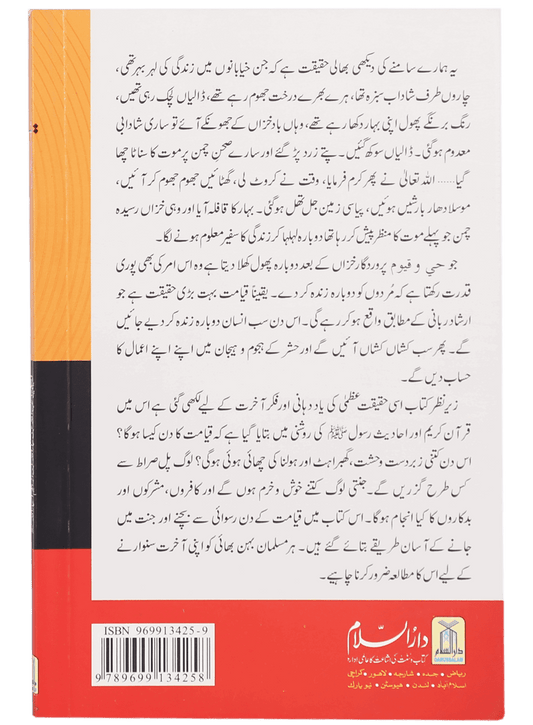 یہ ہمارے سامنے کی دیکھی بھالی حقیقت ہے کہ جن خیابانوں میں زندگی کی لہر بہر تھی،
چاروں طرف شاداب سبزہ تھا، ہرے بھرے درخت جھوم رہے تھے، ڈالیاں لچک رہی تھیں،
رنگ برنگے پھول اپنی بہار دکھا رہے تھے، وہاں بادِ خزاں کے جھونکے آئے تو ساری شادابی
معدوم ہوگئی۔ ڈالیاں سوکھ گئیں۔ پتے زرد پڑ گئے اور سارے صحنِ چمن پر موت کا سناٹا چھا
گیا...... اللہ تعالیٰ نے پھر کرم فرمایا، وقت نے کروٹ لی، گھٹائیں جھوم جھوم کر آئیں،
موسلا دھار بارشیں ہوئیں، پیاسی زمین جل تھل ہوگئی۔ بہار کا قافلہ آیا اور وہی خزاں رسیدہ
چمن جو پہلے موت کا منظر پیش کر رہا تھا دوبارہ لہلہا کر زندگی کا سفیر معلوم ہونے لگا۔
جو حی و قیوم پروردگار خزاں کے بعد دوبارہ پھول کھلا دیتا ہے وہ اس امر کی بھی پوری
قدرت رکھتا ہے کہ مُردوں کو دوبارہ زندہ کر دے۔ یقیناً قیامت بہت بڑی حقیقت ہے جو
ارشادِ ربانی کے مطابق واقع ہو کر رہے گی۔ اس دن سب انسان دوبارہ زندہ کر دیے جائیں
گے۔ پھر سب کشاں کشاں آئیں گے اور حشر کے ہجوم و ہیجان میں اپنے اپنے اعمال کا
حساب دیں گے۔
زیرِ نظر کتاب اسی حقیقتِ عظمیٰ کی یاد دہانی اور فکرِ آخرت کے لیے لکھی گئی ہے اس میں
قرآن کریم اور احادیث رسول ﷺ کی روشنی میں بتایا گیا ہے کہ قیامت کا دن کیسا ہوگا؟
اس دن کتنی زبردست وحشت، گھبراہٹ اور ہولناکی چھائی ہوئی ہوگی؟ لوگ پل صراط سے
کس طرح گزریں گے۔ جنتی لوگ کتنے خوش و خرم ہوں گے اور کافروں، مشرکوں اور
بدکاروں کا کیا انجام ہوگا۔ اس کتاب میں قیامت کے دن رسوائی سے بچنے اور جنت میں
جانے کے آسان طریقے بتائے گئے ہیں۔ ہر مسلمان بہن بھائی کو اپنی آخرت سنوارنے
کے لیے اس کا مطالعہ ضرور کرنا چاہیے۔
ISBN 969913425-9
9 789699 134258
دارُالسّلام
کتاب و سنت کی اشاعت کا عالمی ادارہ
ریاض • جدہ • شارجہ • لاہور • کراچی
اسلام آباد • لندن • ہیوسٹن • نیو یارک
دارالسلام
DARUSSALAM